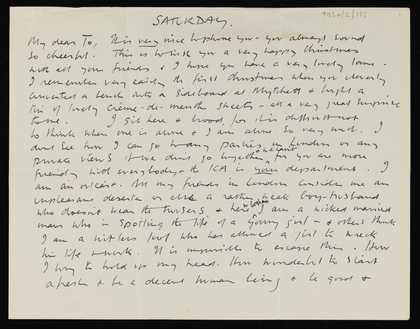 SATURDAY.
My dear To, It is very nice to phone you - you always sound
so cheerful. This is to wish you a very happy Christmas
with all your friends & I hope you have a very lovely time.
I remember very easily the first christmas when you cleverly
converted a bench into a sideboard at Mytchett & bought a
tin of lovely crème-de-menthe sweets - as a very great surprise
to me. I sit here & brood, for it is difficult not
to think when one is alone & I am alone so very much. I
dont see how I can go to any parties in London or any
private views if we dont go together, because for you are more
friendly with everybody & the ICA is your department. I
am an outcast. All my friends in London consider me an
unpleasant deserter or else a rather weak boy-husband
who doesn't wear the trousers & here I am a wicked married
man who is spoiling the life of a young girl - & others think
I am a witless fool who has allowed a girl to wreck
his life & work. It is impossible to escape them. How
I long to hold up my head. How wonderful to start
afresh & be a decent human being & be good &